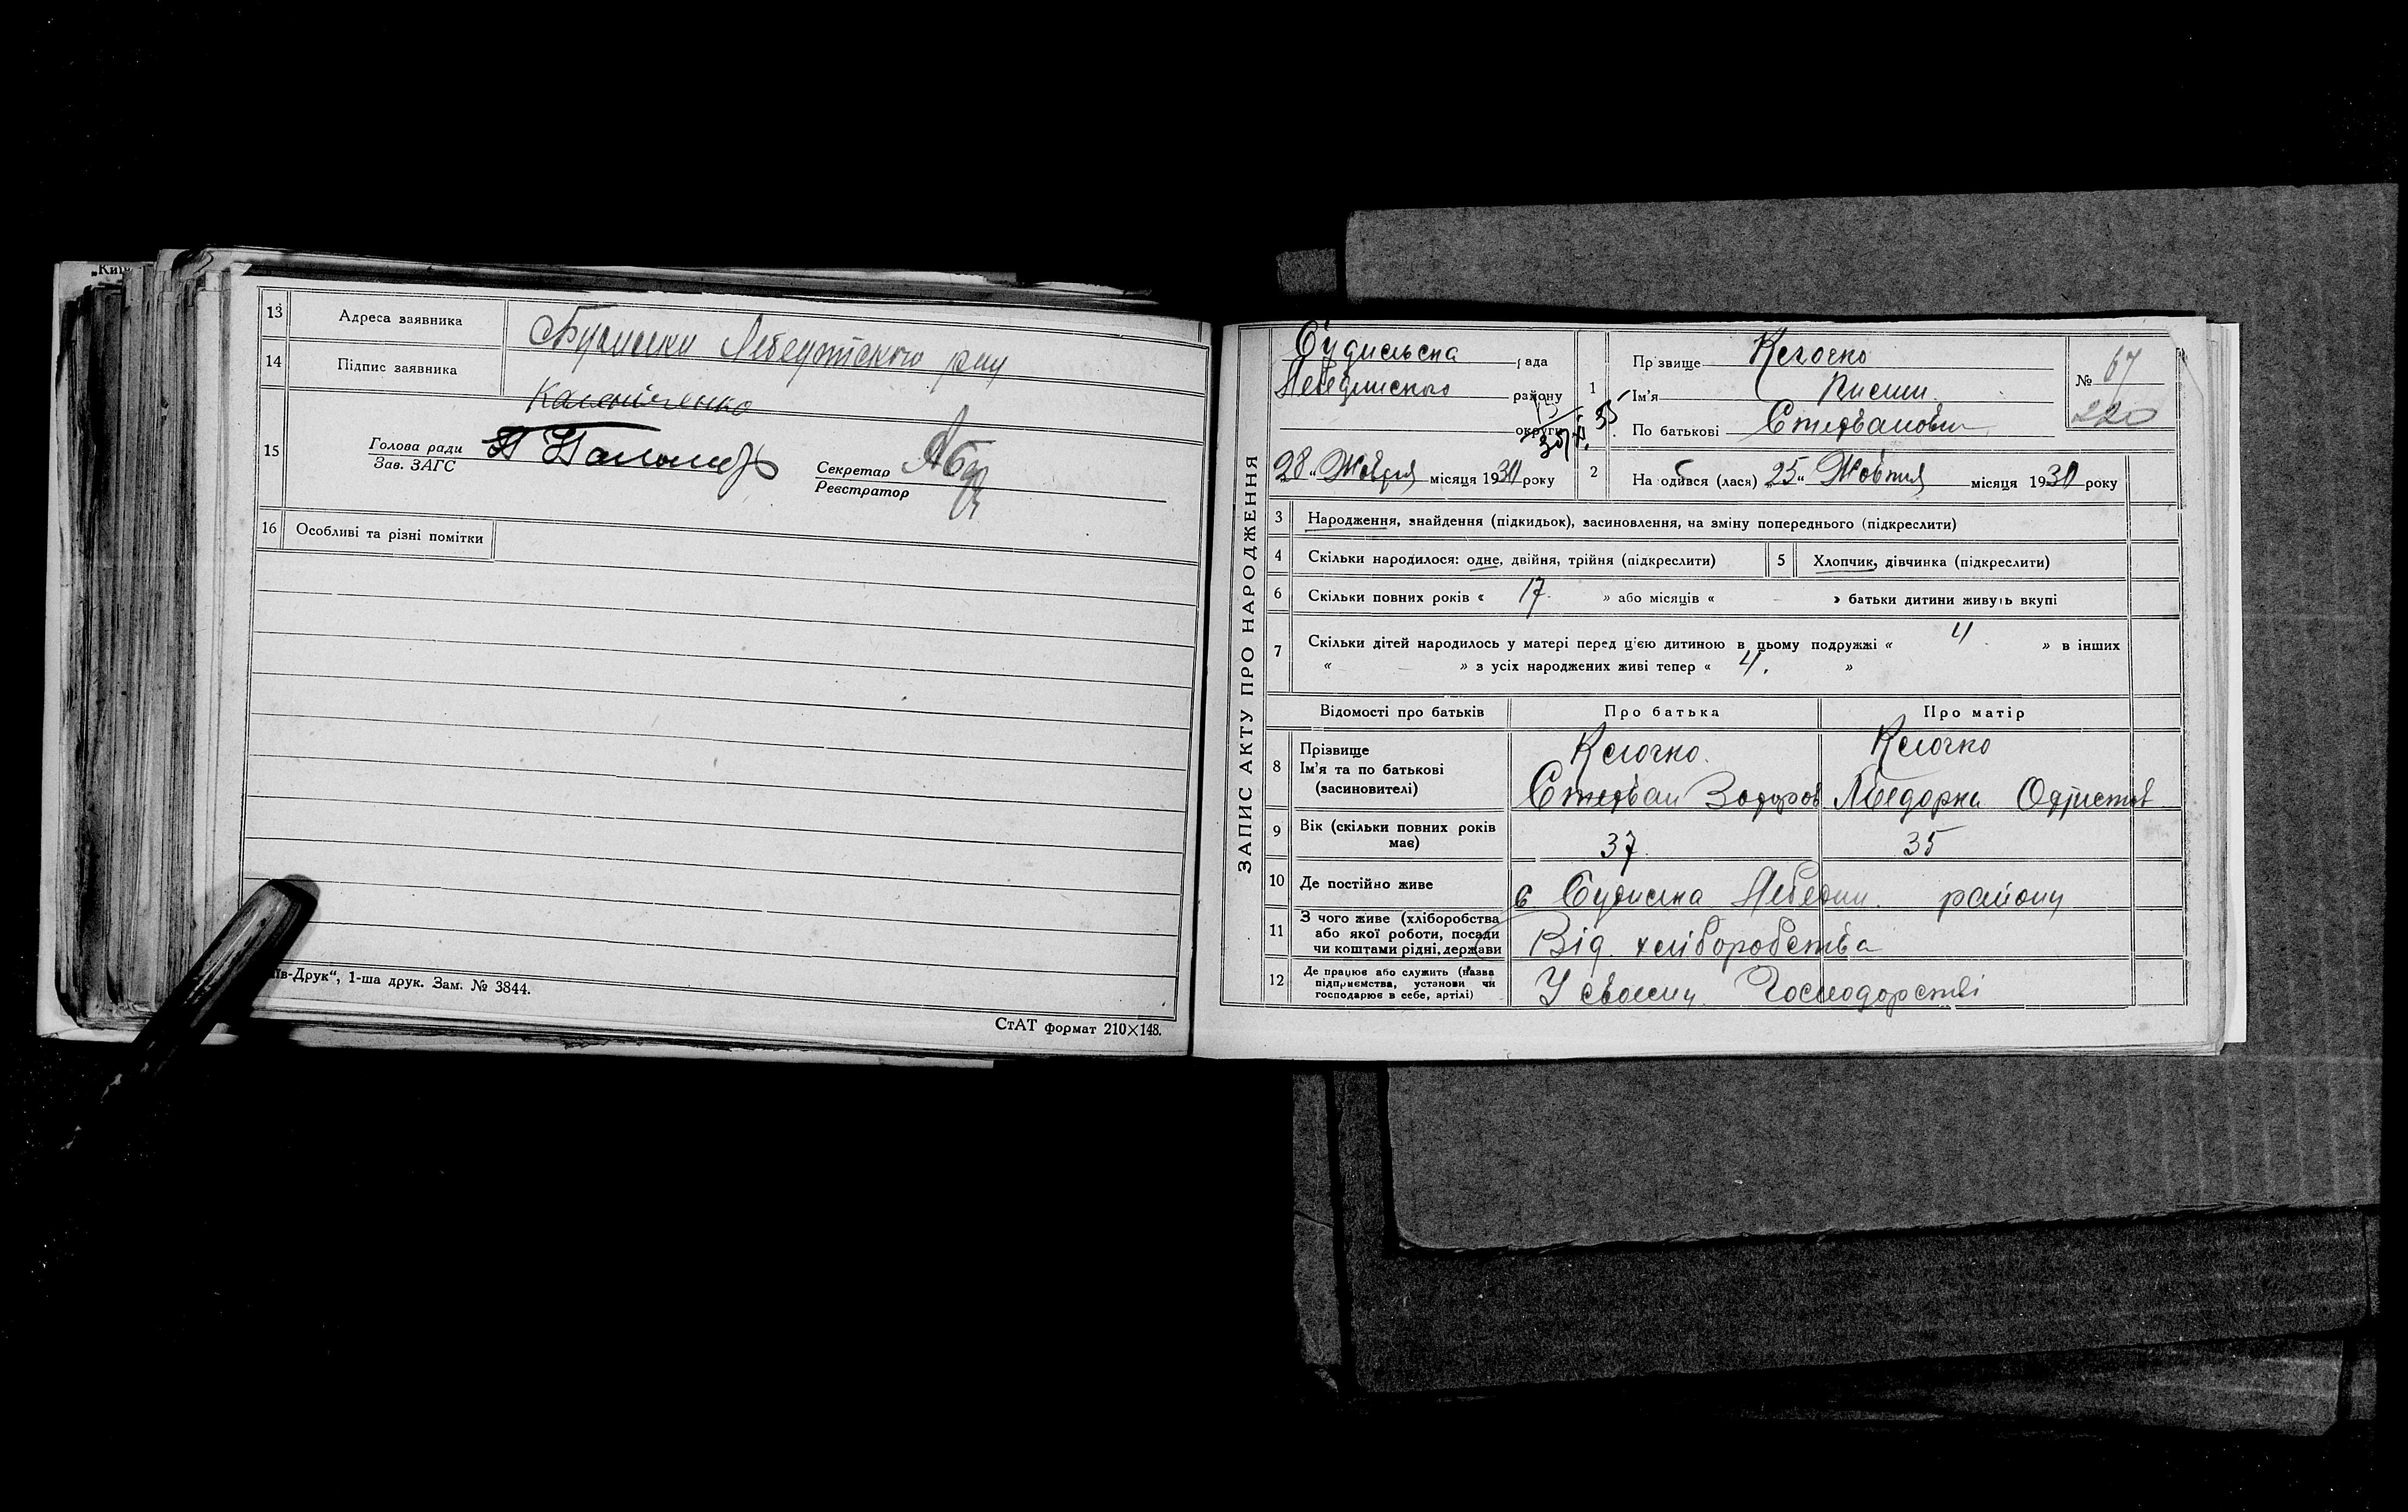 „Київ
13 Адреса заявника
Будилки Лебединського р-ну
14 Підпис заявника
Калюіченко
15 Голова ради
Зав. ЗАГС
Секретар
Реєстратор
16 Особливі та різні помітки
їв-Друк“, 1-ша друк. Зам. № 3844.
СтАТ формат 210×148.
ЗАПИС АКТУ ПРО НАРОДЖЕННЯ
рада
Лебединського району
округи
28 „ Жовтня місяця 1930 року
1 Прізвище Клочко
Ім'я
По батькові Степванович
№ 67
220
2 Народився (лася) „25“ Жовтня місяця 1930 року
3 Народження, знайдення (підкидьок), засиновлення, на зміну попереднього (підкреслити)
4 Скільки народилося: одне, двійня, трійня (підкреслити) 5 Хлопчик, дівчинка (підкреслити)
6 Скільки повних років « 17 » або місяців « - » батьки дитини живуть вкупі
7 Скільки дітей народилось у матері перед ц'єю дитиною в цьому подружжі « 4 » в інших
« — » з усіх народжених живі тепер « 4. »
Відомості про батьків Про батька Про матір
8 Прізвище
Ім'я та по батькові
(засиновителі)
Клочко. Клочко
Степван
9 Вік (скільки повних років
має)
37. 35
10 Де постійно живе
с Будилка Лебедин. району
11 З чого живе (хліборобства
або якої роботи, посади
чи коштами рідні, держави
Від хліборобства
12 Де працює або служить (назва
підприємства, установи чи
господарює в себе, артілі)
У своєму Господорстві